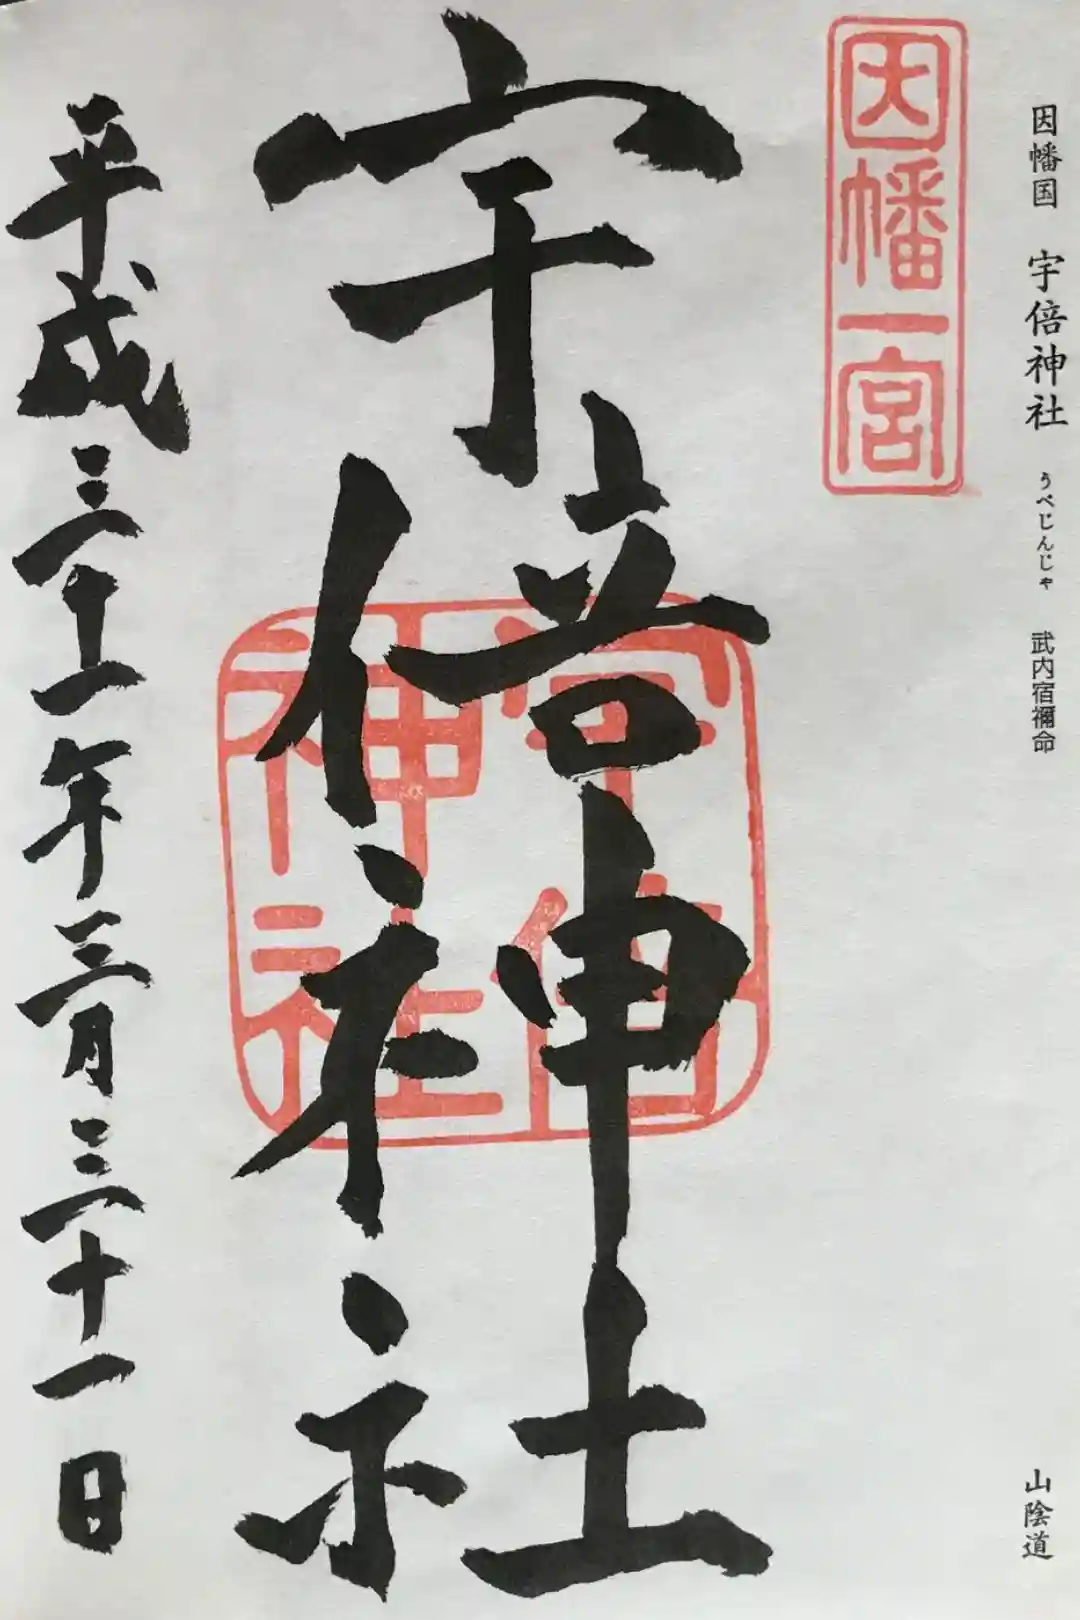 因幡国 宇倍神社 うべじんじゃ 武内宿禰命
山陰道
因幡一宮
宇倍神社
宇倍
神社
平成三十一年三月三十一日